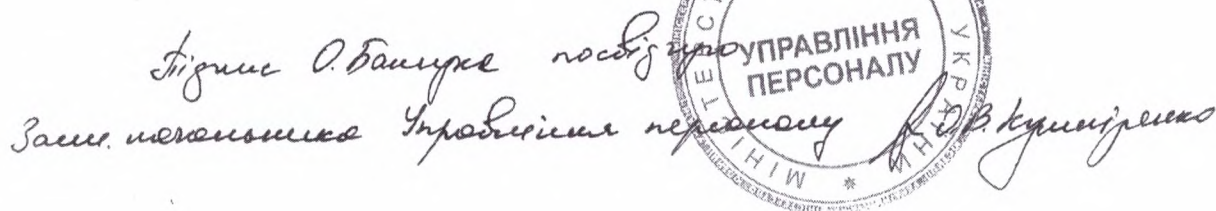 Підпис О. Башука посвідчую
УПРАВЛІННЯ
ПЕРСОНАЛУ
Заст. начальника Управління персоналу О.В. Кушніренко
МІНІ ТЕ УКРАЇНИ *